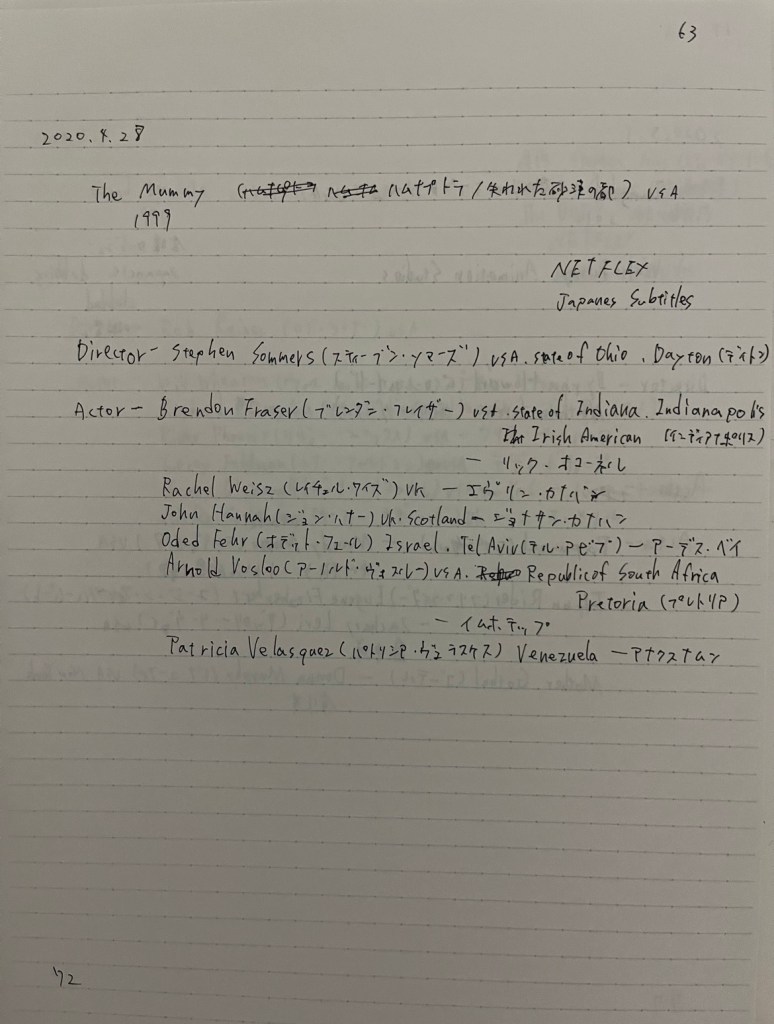 63
2020.4.28
The Mummy (ハムナプトラ/失われた砂漠の都) USA
1999
NETFLEX
Japanes Subtitles
Director - Stephen Sommers (スティーブン・ソマーズ) USA. state of Ohio. Dayton (デイトン)
Actor - Brendon Fraser (ブレンダン・フレイザー) USA. state of Indiana. Indianapolis
Irish American (インディアナポリス)
- リック・オコーネル
Rachel Weisz (レイチェル・ワイズ) UK - エヴリン・カナハン
John Hannah (ジョン・ハナー) UK. Scotland - ジョナサン・カナハン
Oded Fehr (オデット・フェール) Israel. Tel Aviv (テル・アビブ) - アーデス・ベイ
Arnold Vosloo (アーノルド・ヴォスルー) USA. Republic of South Africa
Pretoria (プレトリア)
- イムホテップ
Patricia Velasquez (パトリシア・ヴェラスケス) Venezuela - アナクスナムン
72